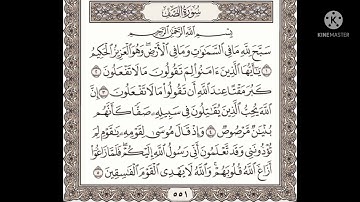 سُورَةُ الصَّفِّ
بِسْمِ اللَّهِ الرَّحْمَٰنِ الرَّحِيمِ
سَبَّحَ لِلَّهِ مَا فِي السَّمَاوَاتِ وَمَا فِي الْأَرْضِ ۖ وَهُوَ الْعَزِيزُ الْحَكِيمُ
١ يَا أَيُّهَا الَّذِينَ آمَنُوا لِمَ تَقُولُونَ مَا لَا تَفْعَلُونَ ٢
كَبُرَ مَقْتًا عِنْدَ اللَّهِ أَنْ تَقُولُوا مَا لَا تَفْعَلُونَ ٣ إِنَّ
اللَّهَ يُحِبُّ الَّذِينَ يُقَاتِلُونَ فِي سَبِيلِهِ صَفًّا كَأَنَّهُمْ
بُنْيَانٌ مَرْصُوصٌ ٤ وَإِذْ قَالَ مُوسَىٰ لِقَوْمِهِ يَا قَوْمِ لِمَ
تُؤْذُونَنِي وَقَدْ تَعْلَمُونَ أَنِّي رَسُولُ اللَّهِ إِلَيْكُمْ ۖ فَلَمَّا زَاغُوا
أَزَاغَ اللَّهُ قُلُوبَهُمْ ۚ وَاللَّهُ لَا يَهْدِي الْقَوْمَ الْفَاسِقِينَ ٥
٥٥١
Made with
KINEMASTER